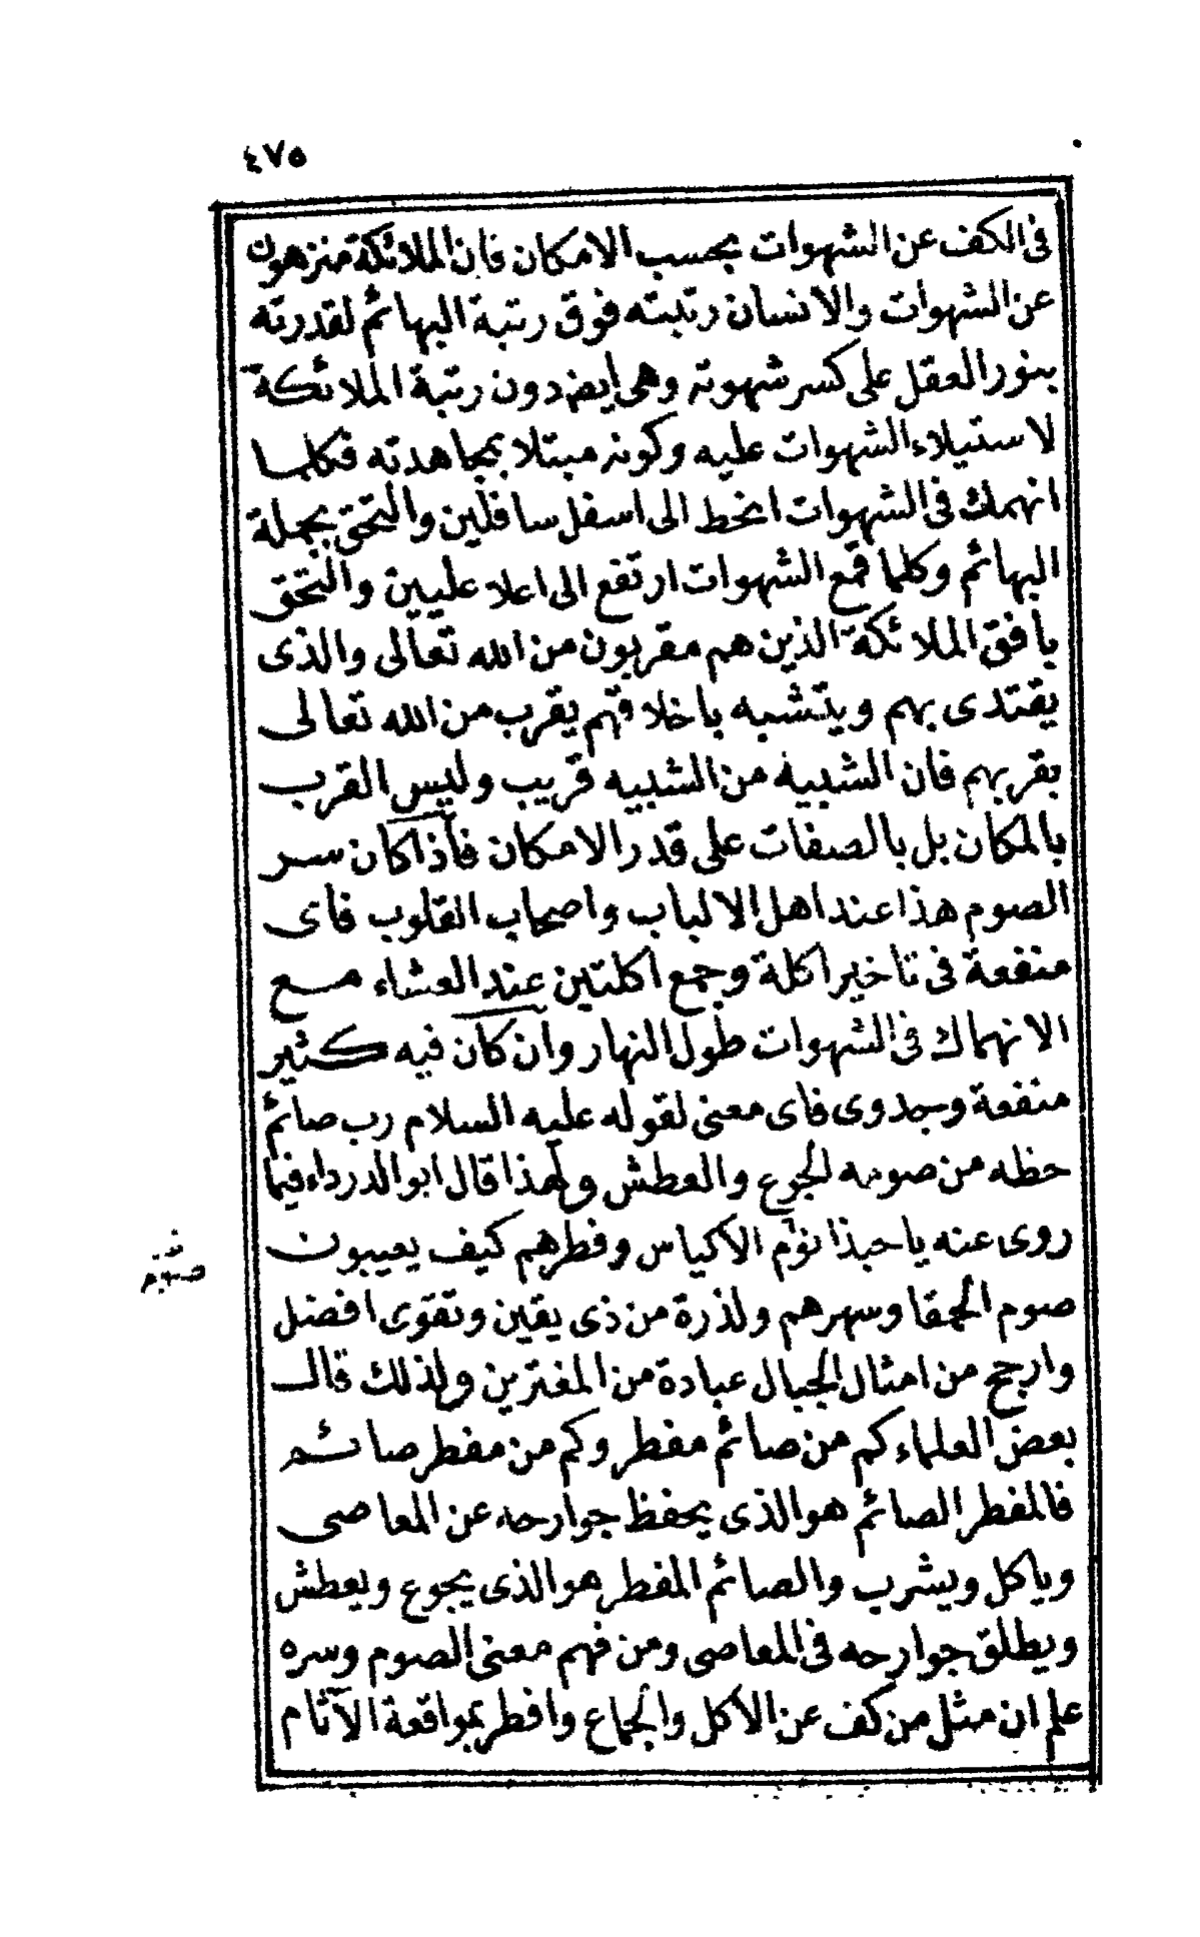 ٤٧٥
فى الكف عن الشهوات بحسب الامكان فان الملائكة منزهون
عن الشهوات والانسان رتبته فوق رتبة البهائم لقدرته
بنور العقل على كسر شهوته وهى ايض دون رتبة الملائكة
لاستيلاء الشهوات عليه وكونه مبتلا بمجاهدته فكلما
انهمك فى الشهوات انحط الى اسفل سافلين والتحق بجملة
البهائم وكلما قمع الشهوات ارتفع الى اعلا عليين والتحق
بافق الملائكة الذين هم مقربون من الله تعالى والذى
يقتدى بهم ويتشبه باخلاقهم يقرب من الله تعالى
بقربهم فان الشبيه من الشبيه قريب وليس القرب
بالمكان بل بالصفات على قدر الامكان فاذا كان سر
الصوم هذا عند اهل الالباب واصحاب القلوب فاى
منفعة فى تاخير اكلة وجمع اكلتين عند العشاء مع
الانهماك فى الشهوات طول النهار وان كان فيه كثير
منفعة وجدوى فاى معنى لقوله عليه السلام رب صائم
حظه من صومه الجوع والعطش ولهذا قال ابو الدرداء فيما
روى عنه يا حبذا نوم الاكياس وفطرهم كيف يعيبون
صوم الحمقا وسهرهم ولذرة من ذى يقين وتقوى افضل
وارجح من امثال الجبال عبادة من المغترين ولذلك قال
بعض العلماء كم من صائم مفطر وكم من مفطر صائم
فالمفطر الصائم هو الذى يحفظ جوارحه عن المعاصى
وياكل ويشرب والصائم المفطر هو الذى يجوع ويعطش
ويطلق جوارحه فى المعاصى ومن فهم معنى الصوم وسره
علم ان مثل من كف عن الاكل والجماع وافطر بمواقعة الآثام